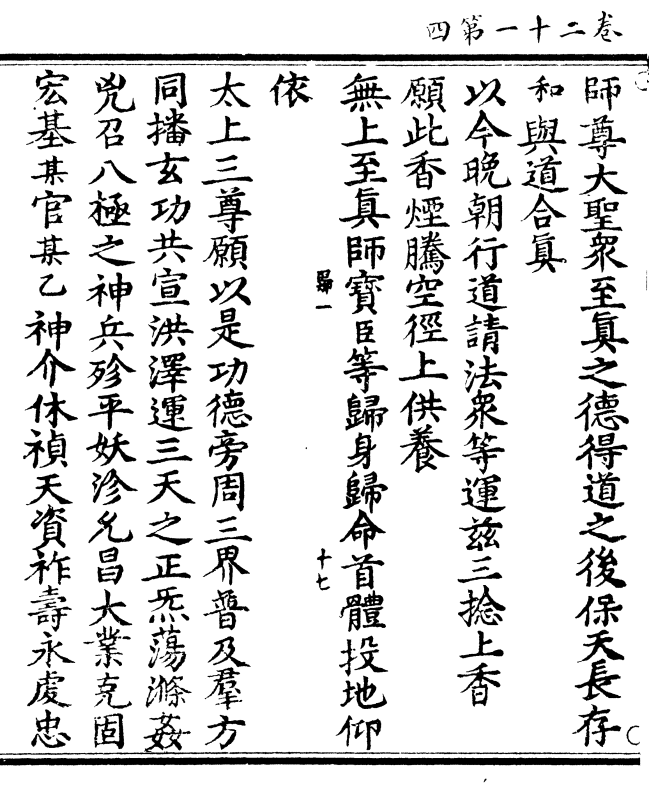 卷二十一第四
師尊大聖衆至眞之德得道之後保天長存
和與道合眞
以今晚朝行道請法衆等運兹三捻上香
願此香煙騰空徑上供養
無上至眞師寶臣等歸身歸命首體投地仰
歸一
十七
依
太上三尊願以是功德旁周三界普及羣方
同播玄功共宣洪澤運三天之正炁蕩滌姦
兇召八極之神兵殄平妖沴允昌大業克固
宏基某官某乙神介休禎天資祚壽永虔忠